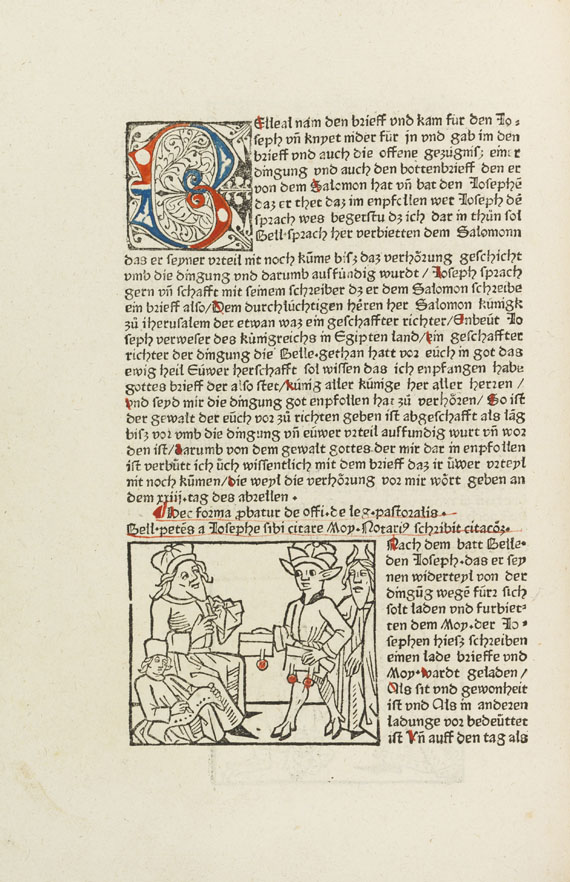 BElleal nam den brieff vnd kam für den Jo⸗
seph vn̄ knyet nider für jn vnd gab im den
brieff vnd auch die offene gezügnisz einer
dingung vnd auch den bottenbrieff den er
von dem Salomon hat vn̄ bat den Josephē
daz er thet daz im enpfollen wer Joseph dē
sprach wes begerstu dz ich dar in thün sol
Bell sprach her verbietten dem Salomonn
das er seyner vrteil nit noch küme bisz daz verhörung geschicht
vmb die dingung vnd darumb ausfündig wurdt / Joseph sprach
gern vn̄ schafft mit seinem schreiber dz er dem Salomon schreibe
ein brieff also / Dem durchlüchtigen hēren her Salomon künigk
zü iherusalem der etwan waz ein geschaffter richter / Enbeüt Jo
seph verweser des künigreichs in Egipten land / ein geschaffter
richter der dingung die Belle·gethan hatt vor eüch in got das
ewig heil Eüwer herschafft sol wissen das ich enpfangen habe
gottes brieff der also stet / künig aller künige her aller herren /
vnd seyd mir die dingung got enpfollen hat zü verhören / So ist
der gewalt der eüch vor zü richten geben ist abgeschafft als lāg
bisz vor vmb die dingung vn̄ eüwer vrteil ausfundig wurt vn̄ wor
den ist / darumb von dem gewalt gottes der mir dar in enpfollen
ist verbütt ich üch wissentlich mit dem brieff daz ir üwer vrteyl
nit noch kümen / die weyl die verhörung vor mir wört geben an
dem xxiij·tag des abrellen·
¶ Hec forma ꝓbatur de offi·de leg·pastoralis·
Bell·petēs a Josephe sibi citare Moy·Notariꝰ schribit citacōꝫ·
Nach dem batt Belle·
den Joseph·das er sey
nen widerteyl von der
dingūg wegē fürz sich
solt laden vnd fürbiet⸗
ten dem Moy·der Jo⸗
sephen hiesz schreiben
einen lade brieffe vnd
Moy·wardt geladen /
Als sit vnd gewonheit
ist vnd Als in anderen
ladunge vor bedeüttet
ist Vn̄ auff den tag als